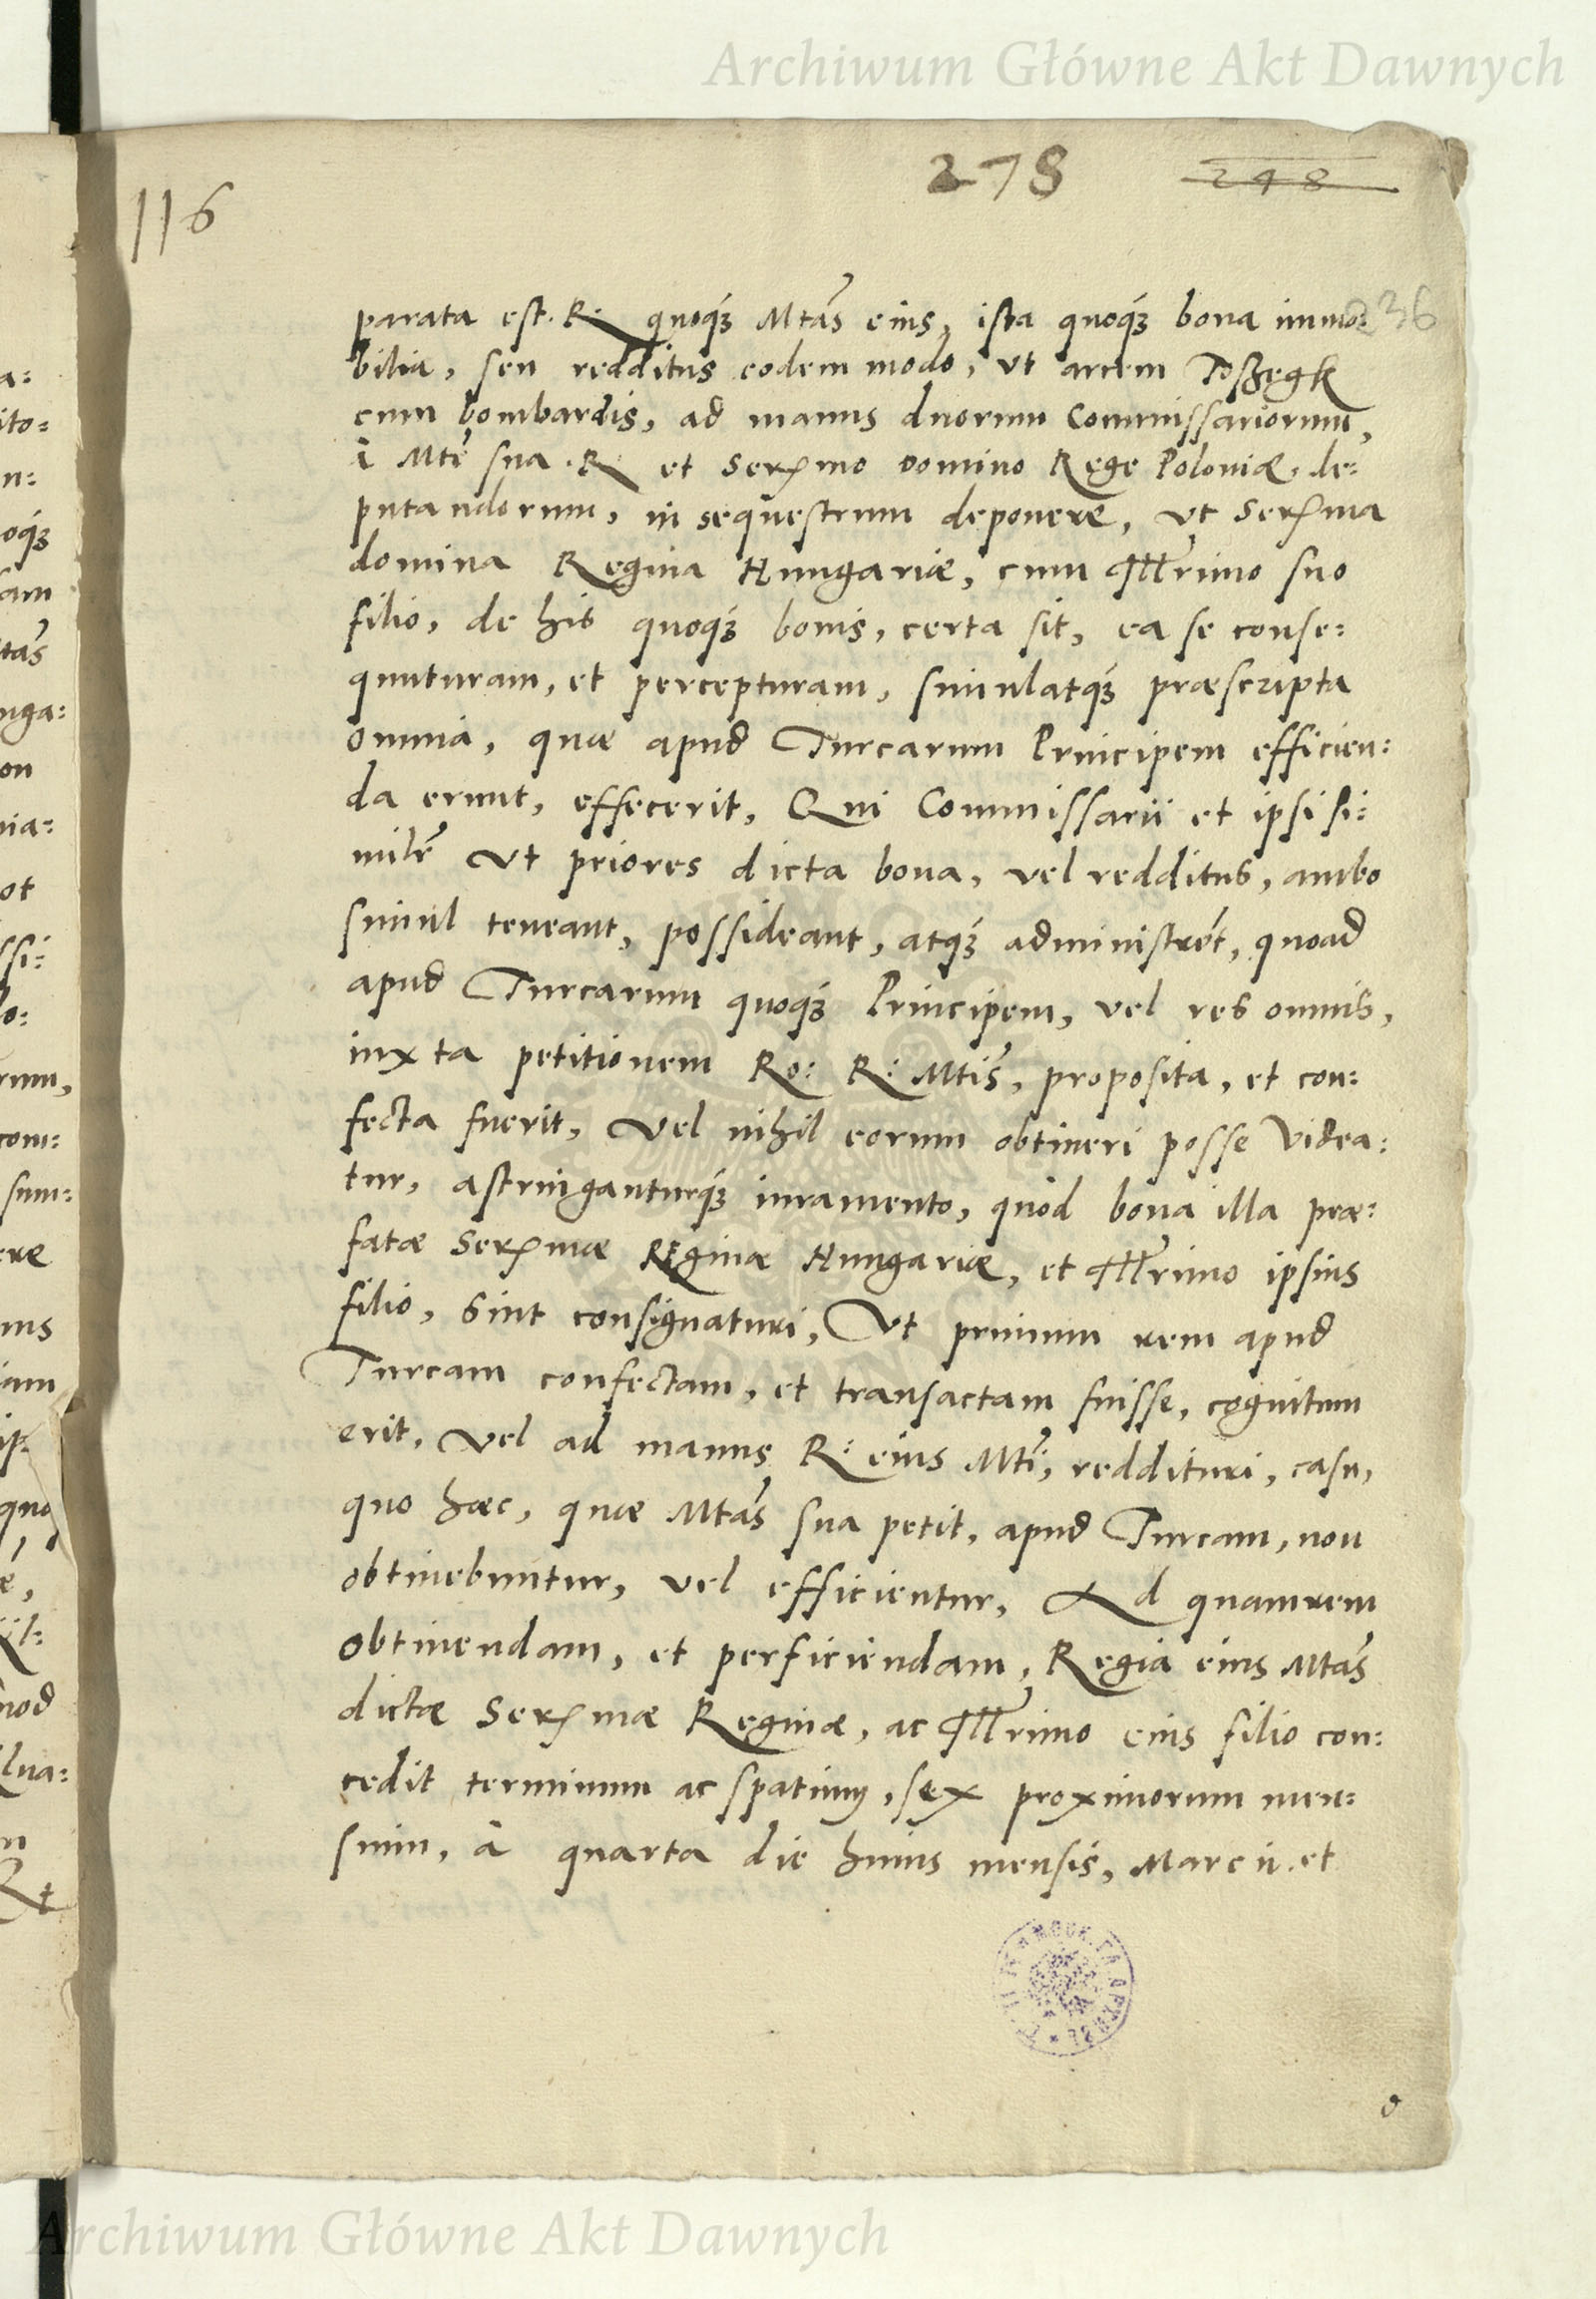 Archiwum Główne Akt Dawnych
278 248
116
236
parata est. R. quoq́ꝫ Mtãs eius, ista quoq́ꝫ bona immo:
bilia, seu redditus eodem modo, ut arcem Toßegk
cum bombardis, ad manus duorum Commissariorum,
à Mtẽ sua R. et Serᷤmo Domino Rege Poloniæ, de:
putandorum, in sequestrum deponere, ut Serᷤma
domina Regina Hungariæ, cum Illr̃imo suo
filio, de his quoq́ꝫ bonis, certa sit, ea se conse:
quuturam, et percepturam, simulatq́ꝫ præscripta
omnia, quæ apud Turcarum Principem efficien:
da erunt, effecerit, Qui Commissarii et ipsi si:
milr̃ ut priores dicta bona, vel redditus, ambo
simul teneant, possideant, atq́ꝫ administrẽt, quoad
apud Turcarum quoq́ꝫ Principem, vel res omnis,
iuxta petitionem Ro: R: Mtis̃, proposita, et con:
fecta fuerit, Vel nihil eorum obtineri posse videa:
tur, astringanturq́ꝫ iuramento, quòd bona illa præ:
fatæ Serᷤmæ Reginæ Hungariæ, et Illr̃imo ipsius
filio, sint consignaturi, Ut primum rem apud
Turcam confectam, et transactam fuisse, cognitum
erit, vel ad manus R: eius Mtĩ, reddituri, casu,
quo hæc, quæ Mtãs sua petit, apud Turcam, non
obtinebuntur, vel efficientur, Ad quam rem
obtinendam, et perficiendam, Regia eius Mtãs
dictæ Serᷤmæ Reginæ, ac Illr̃imo eius filio con:
cedit terminum ac spatium, sex proximorum men:
sium, à quarta die huius mensis, Marcii et
Archiwum Główne Akt Dawnych